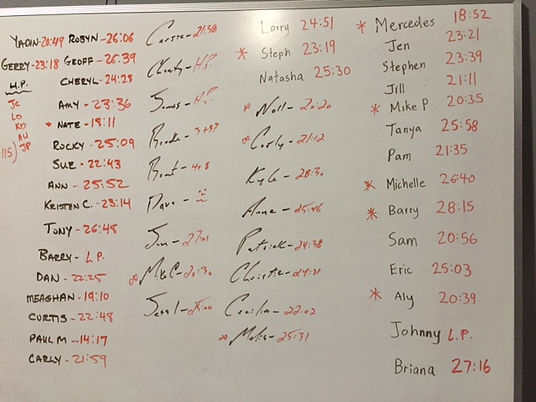 YADIN-20:49 ROBYN-26:06
GERRY-23:18 GEOFF-26:39
H.P. CHERYL-24:28
JC
LD
KD
AU
JP
115)
AMY-23:36
* NATE-18:11
ROCKY-25:09
SUE-22:43
ANN-25:52
KRISTEN C.-23:14
TONY-26:48
BARRY-L.P.
DAN-22:25
MEAGHAN-19:10
CURTIS-22:48
PAUL M-14:17
CARLY-21:59
Carrie-21:38
Christy-H.P.
James-H.P.
Brooke-3+37
Brent-
Dave-
Jen-27:01
* Mike C-20:30
Jess L-25:00
Larry 24:51
* Steph 23:19
Natasha 25:30
* Nell-20:20
* Corly-21:12
Kyle-28:30
Anne-25:46
Patrick-24:38
Christie-
Cecilia-22:02
* 25:31
* Mercedes 18:52
Jen 23:21
Stephen 23:39
Jill 21:11
* Mike P 20:35
Tanya 25:58
Pam 21:35
* Michelle 26:40
* Barry 28:15
Sam 20:56
Eric 25:03
* Aly 20:39
Johnny L.P.
Briana 27:16